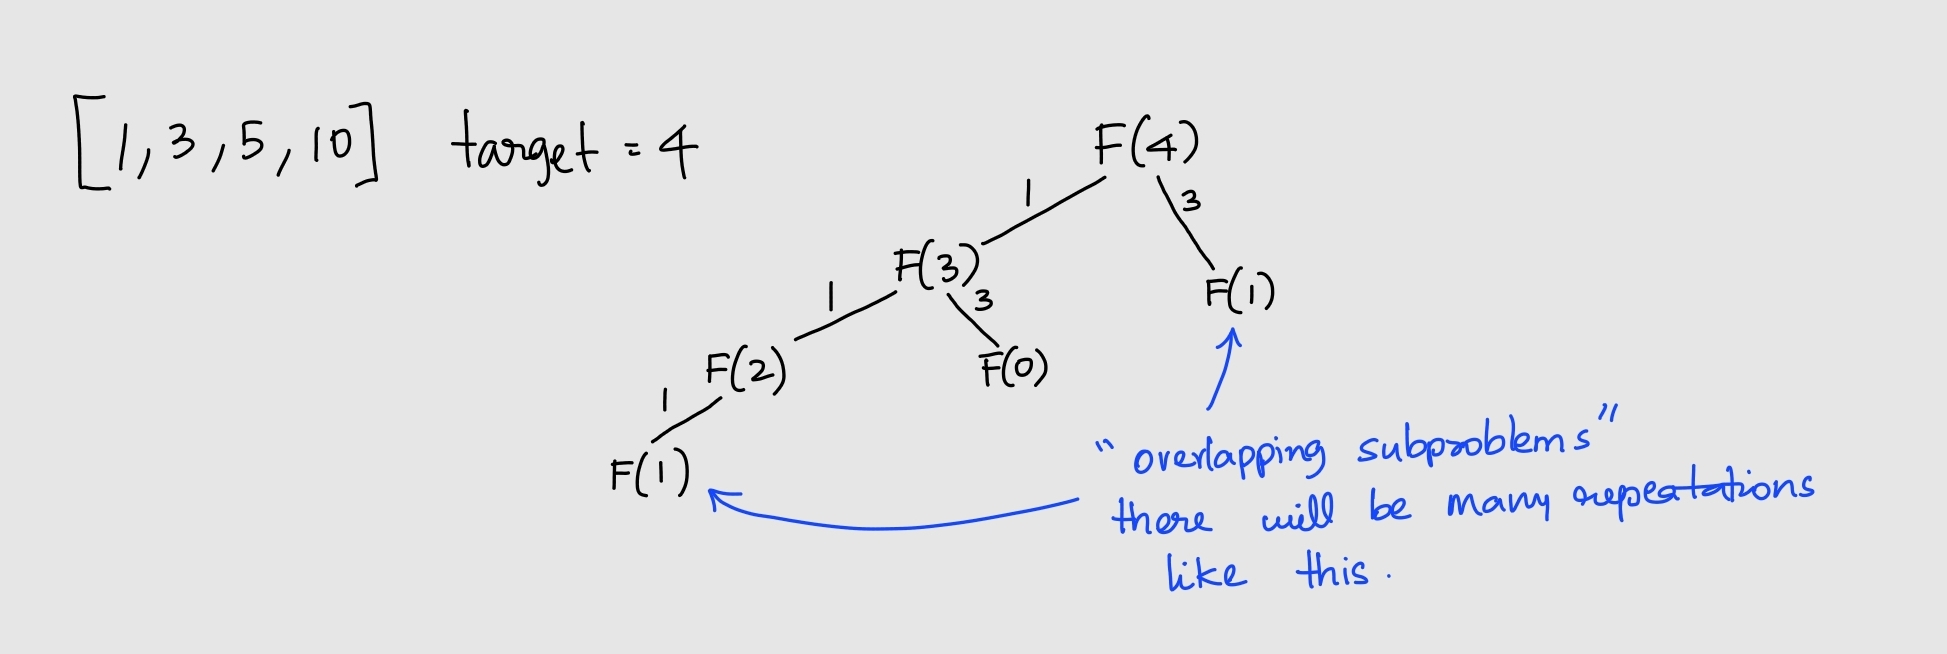 [1, 3, 5, 10] target = 4
F(4)
1
3
F(3)
F(1)
1
3
F(2)
F(0)
1
F(1)
"overlapping subproblems"
there will be many repeatations
like this.